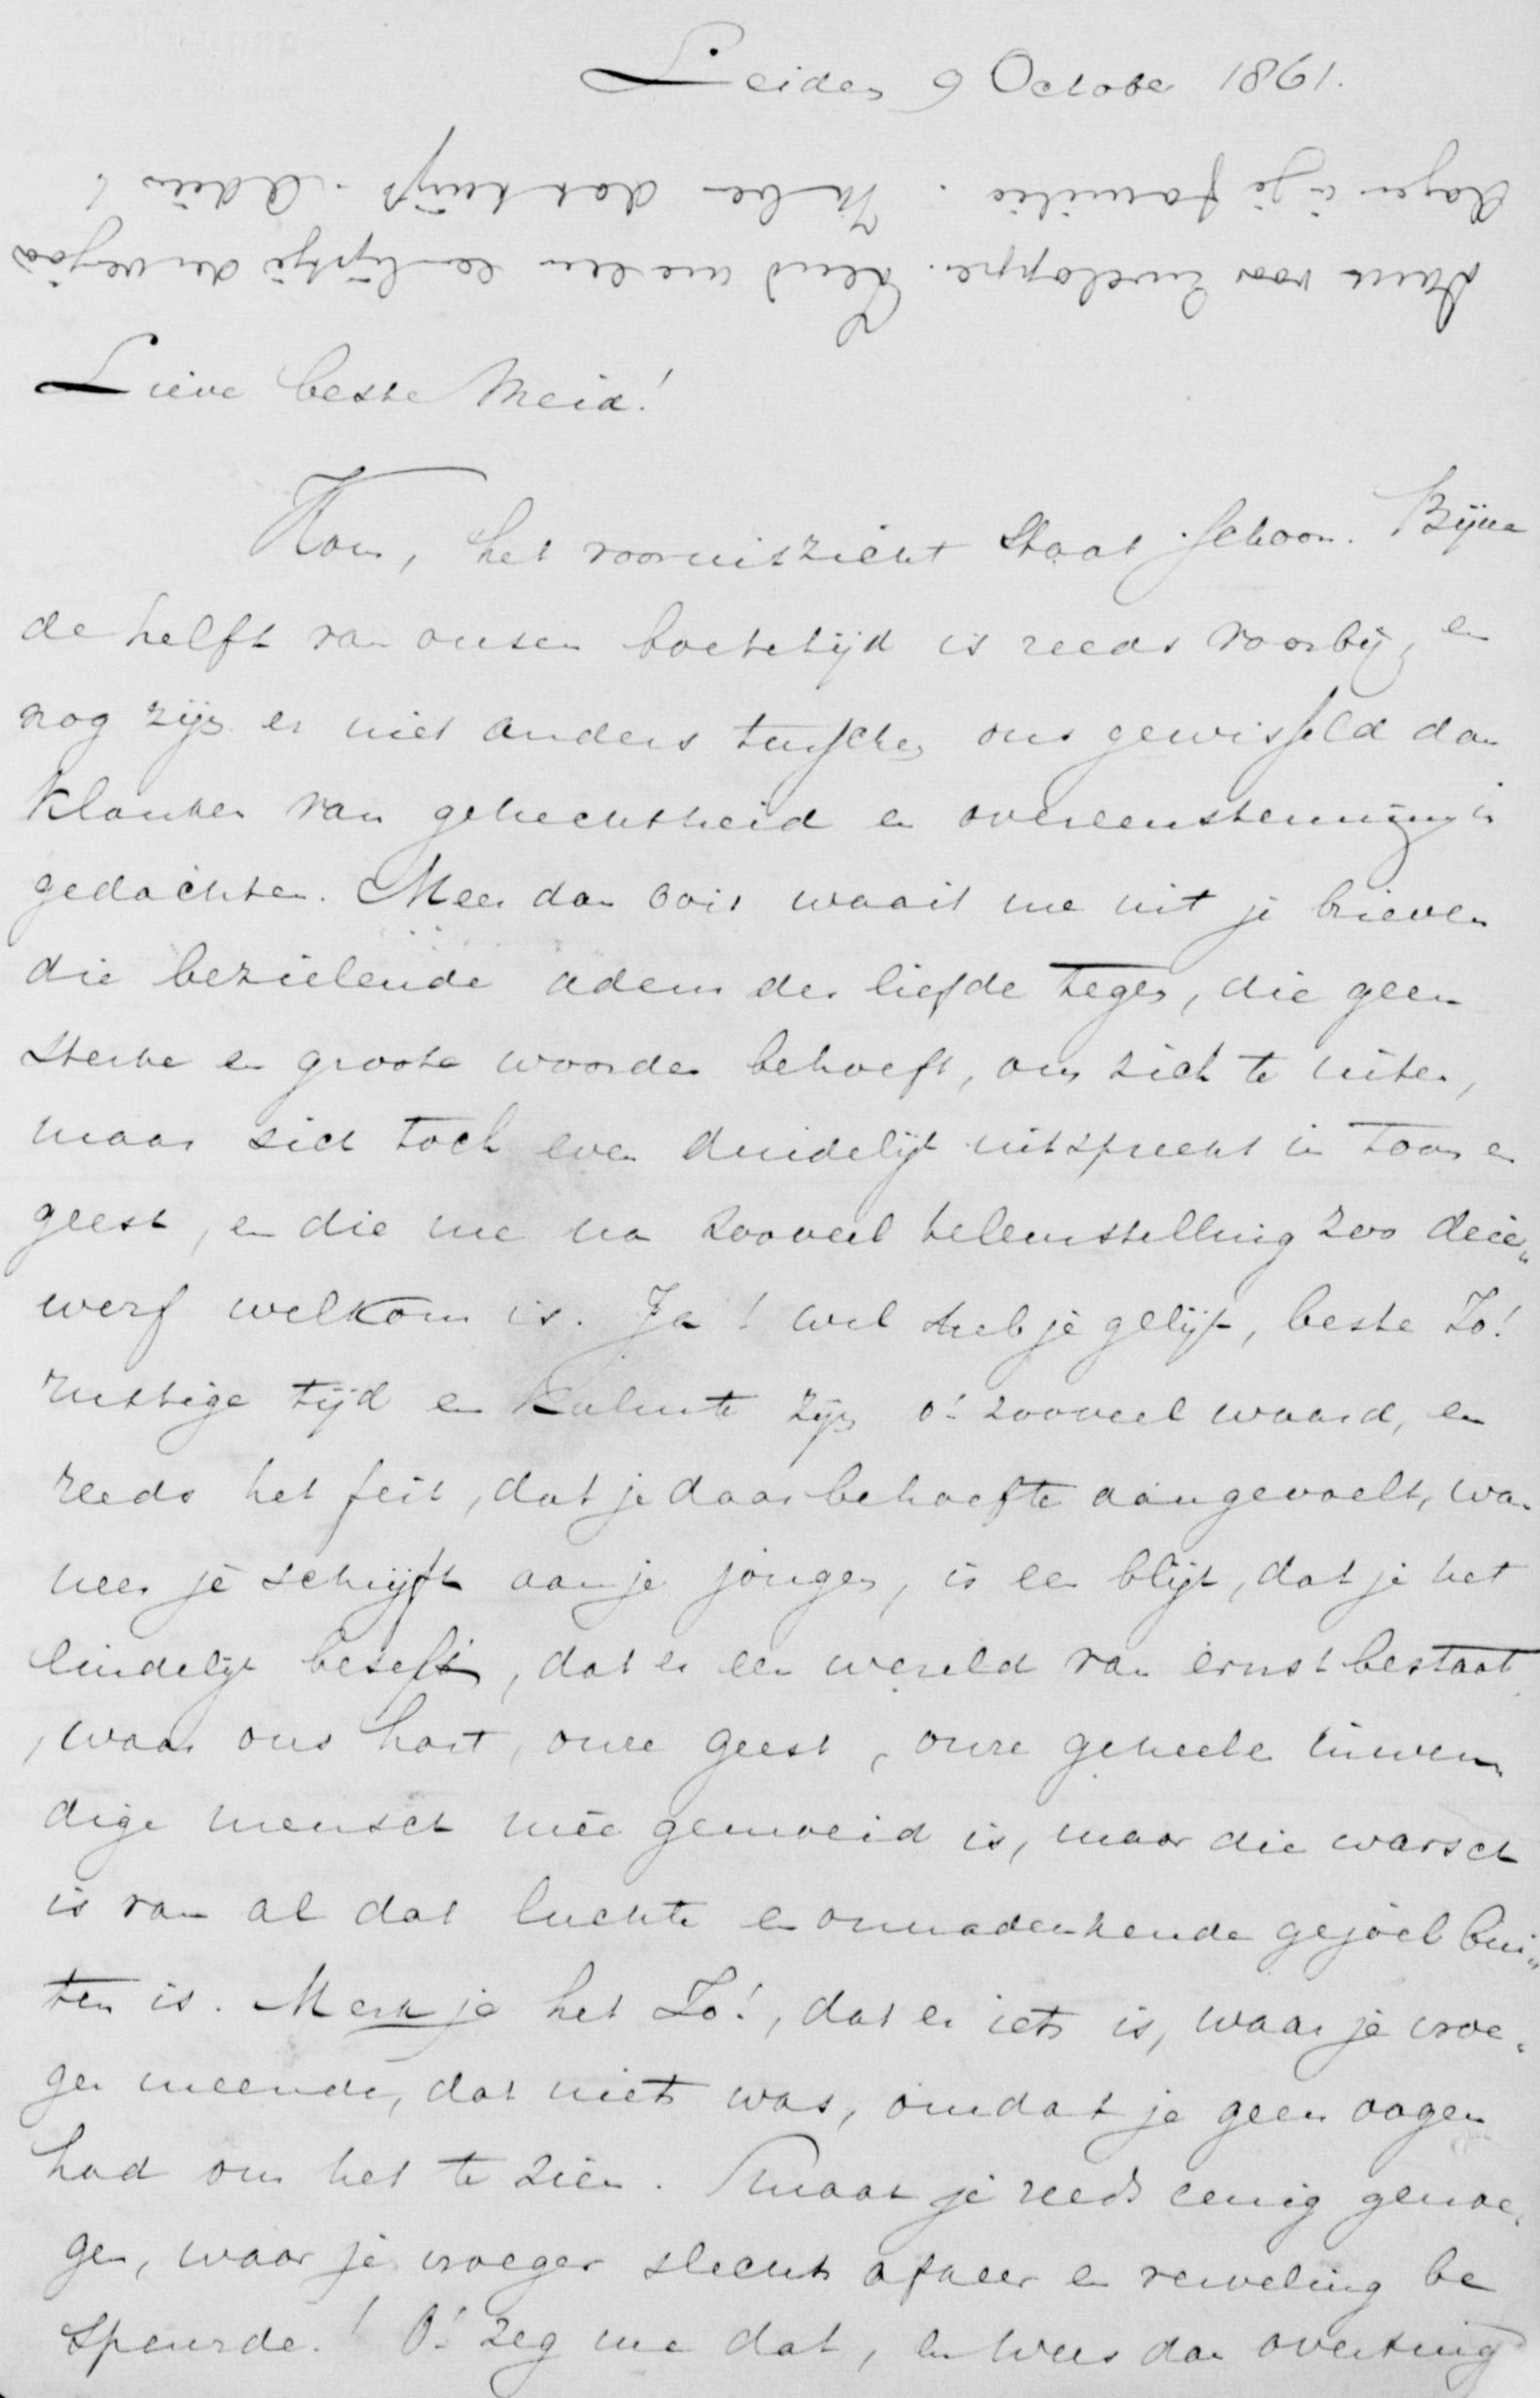 Leiden 9 October 1861.
Dank voor Enveloppe. Zend me een lijstje der verjaar
dagen v. je familie. Ik ben dat kwijt. Adieu!
Lieve beste Meid!
Kom, het vooruitzicht staat schoon. Bijna
de helft van onzen boetetijd is reeds voorbij, en
nog zijn er niet anders tusschen ons gewisseld dan
klanken van gehechtheid en overeenstemming in
gedachten. Meer dan ooit waait me uit je brieven
die bezielende adem der liefde tegen, die geen
sterke en groote woorden behoeft, om zich te uiten,
maar zich toch even duidelijk uitspreekt in toon en
geest, en die me na zooveel teleurstelling zoo drie„
werf welkom is. Ja! wel heb je gelijk, beste Zo!
rustige tijd en kalmte zijn o! zooveel waard, en
reeds het feit, dat je daar behoefte aan gevoelt, wan
neer je schrijft aan je jongen, is een blijk, dat je het
eindelijk beseft, dat er een wereld van ernst bestaat
, waar ons hart, onze geest, onze geheele inwen
dige mensch mee gemoeid is, maar die warsch
is van al dat luchte en onnadenkende gejoel bui„
ten is. Merk je het Zo!, dat er iets is, waar je vroe„
ger meende, dat niets was, omdat je geen oogen
had om het te zien. Smaak je reeds eenig genoe„
gen, waar je vroeger slechts afkeer en verveling be
speurde! O! zeg me dat, en wees dan overtuigd